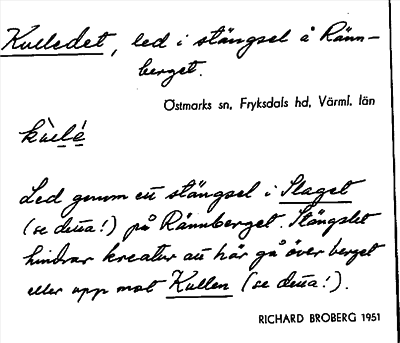 Kulledet, led i stängsel å Ränn-
berget.
Östmarks sn, Fryksdals hd, Värml. län
Led genom ett stängsel i Slaget
(se detta!) på Rännberget. Stängslet
hindrar kreatur att här gå över berget
eller upp mot Kullen (se detta!).
RICHARD BROBERG 1951